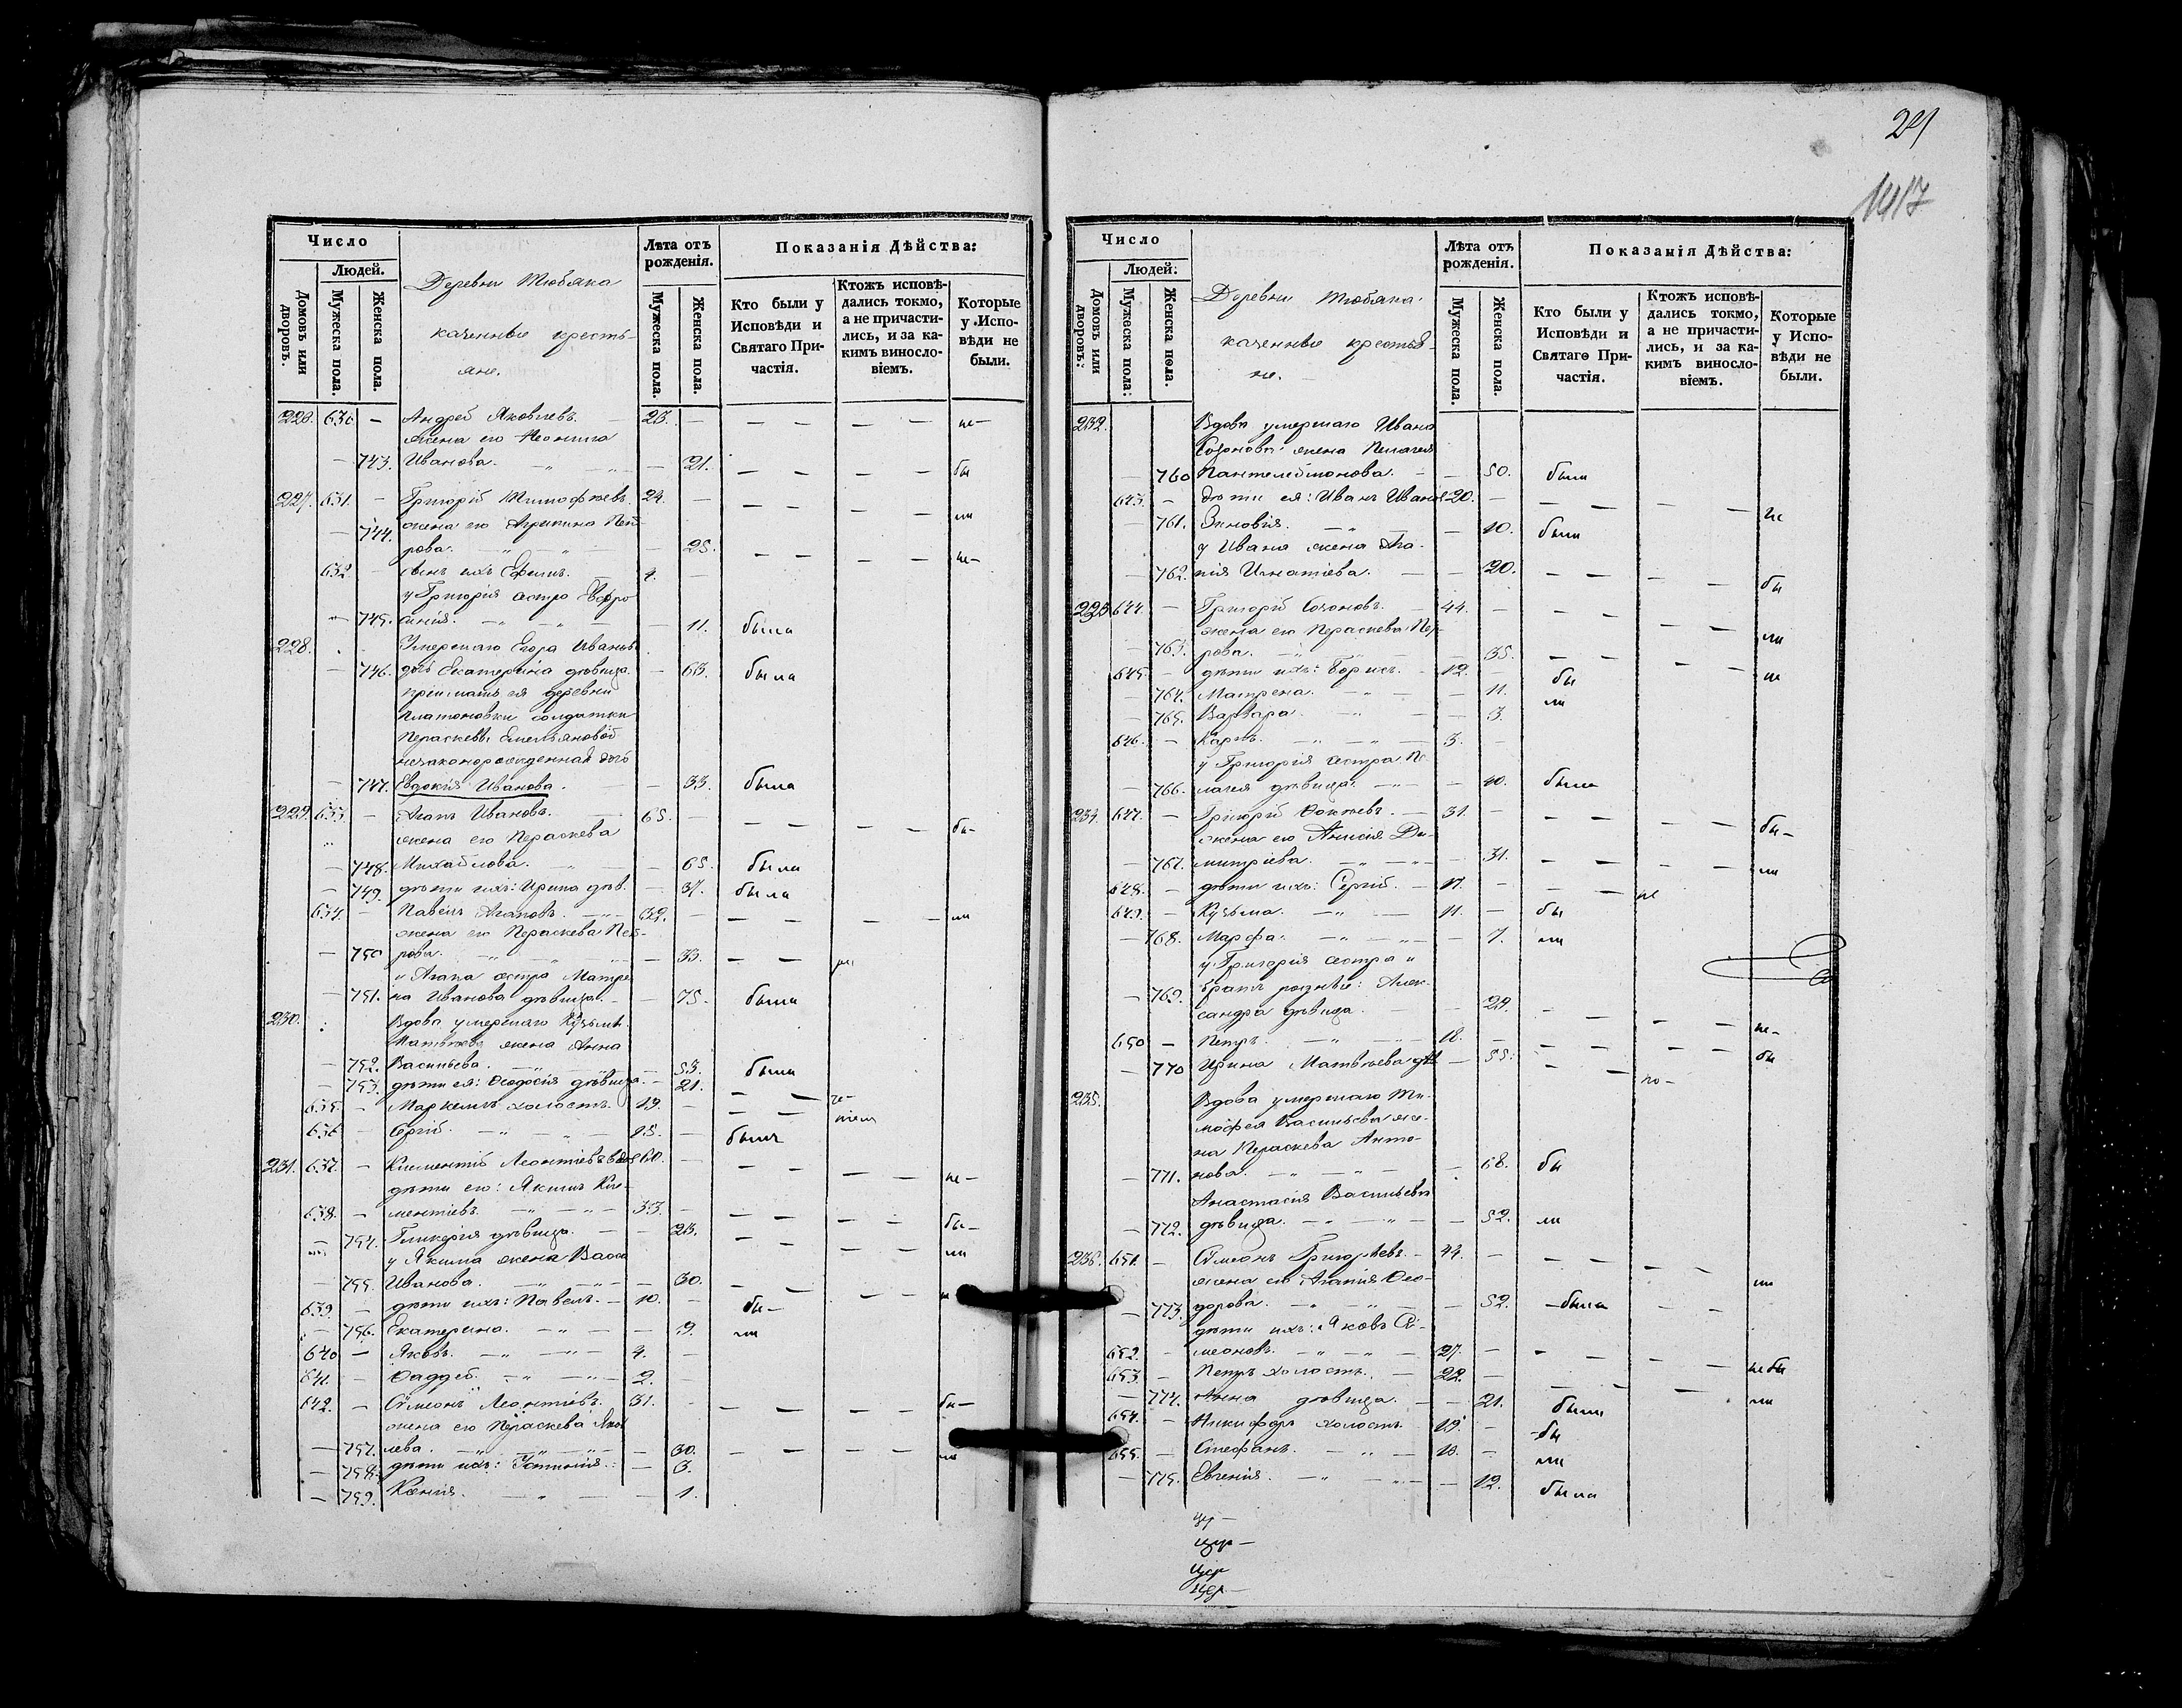 Число
Людей.
Домовъ или дворовъ.
Мужеска пола.
Женска пола.
Деревни Тюбяка
казенные кресть-
яне.
Лѣта отъ рожденія.
Мужеска пола.
Женска пола.
Показанія Дѣйства:
Кто были у Исповѣди и Святаго Причастія.
Ктожъ исповѣдались токмо, а не причастились, и за какимъ винословіемъ.
Которые у Исповѣди не были.
226. 630. — Андрей Яковлевъ. 23. — не—
жена его Неонила
743. Иванова. — 21. бы
227. 631. — Григорій Тимофѣевъ. 24. —
жена его Агрипина Пет- ли
744. рова. — 25.
632. — сынъ ихъ Ефимъ. 4. — не—
у Григорія сестра Евфро
745. синія. — 11. была
228. Умершаго Егора Иванов
746. дочь Екатерина дѣвица. — 63. была
пріимышъ ея деревни
Платоновки солдатки
Параскевы Емельяновой
незаконорожденная дочь
747. Евдокія Иванова. — 33. была
229. 633. — Агапъ Ивановъ. 65. — бы—
жена его Пераскева
748. Михайлова. — 65. была
749. дѣти ихъ: Ирина дѣв. — 37. была
634. — Павелъ Агаповъ. 32. — ли
жена его Пераскева Пет-
750 рова. — 33.
у Агапа сестра Матре
751. на Иванова дѣвица. — 75. была
230. Вдова умершаго Кузьмы
Матвѣева жена Анна
752. Васильева. — 53. была
753. дѣти ея: Ѳеодосія дѣвица. — 21.
635. — Маркеллъ холостъ. 19. —
636 — Сергій. 15. — былъ
231. 637. — Климентій Леонтіевъ вдов 60. — не—
дѣти его: Якимъ Кли-
638. — ментіевъ. 33. — бы—
754. Гликерія дѣвица. — 23. ли
у Якима жена Васса
755. Иванова. — 30.
639. — дѣти ихъ: Павелъ. 10. — бы—
756. Екатерина. — 9. ли
640 — Яковъ. 4. —
641. — Ѳаддей. 2. —
642. — Сѵмеонъ Леонтіевъ. 31. — бы—
жена его Пераскева Яков
757. лева. — 30. ли
758. дѣти ихъ: Устинія. — 3.
759. Ксенія. — 1.
Число
Людей.
Домовъ или дворовъ.
Мужеска пола.
Женска пола.
Деревни Тюбяка
казенные крестья-
не.
Лѣта отъ рожденія.
Мужеска пола.
Женска пола.
Показанія Дѣйства:
Кто были у Исповѣди и Святаго Причастія.
Ктожъ исповѣдались токмо, а не причастились, и за какимъ винословіемъ.
Которые у Исповѣди не были.
232. Вдова умершаго Ивана
Созонова жена Пелагея
760 Пантелеймонова. — 50. была
643. — Дѣти ея: Иванъ Иванов 20. — не
761. Зиновія. — 10. была
у Ивана жена Ага-
762. пія Игнатіева. — 20. бы
233. 644. — Григорій Созоновъ. 44. — ли
жена его Пераскева Пет-
763. рова. — 35. не
645. — дѣти ихъ: Борисъ. 12. — бы
764. Матрена. — 11. ли
765. Варвара. — 3.
646. — Карпъ. 3. —
у Григорія сестра Пе
766. лагея дѣвица. — 40. была
234. 647. — Григорій Фокѣевъ. 31. — бы—
жена его Анисія Ди-
767. митріева. — 31. ли
648. — дѣти ихъ: Сергій. 17. — не
649. — Кузьма. 11. — бы
768. Марфа. — 7. ли
у Григорія сестра и
769. братъ родные: Алек-
сандра дѣвица. — 29. не—
650 — Петръ. 18. — бы
770 Ирина Матвѣева дѣв — 55.
235. Вдова умершаго Ти-
мофея Васильева же-
на Пераскева Анто-
771. нова. — 68. бы
Анастасія Васильева
772. дѣвица. — 52. ли
236. 651. — Сѵмеонъ Григорьевъ. 44. —
жена его Агапія Ѳео- ли
773. дорова. — 52. — была
дѣти ихъ: Яковъ Сѵ-
652. — меоновъ. 27. — не бы
653. — Петръ холостъ. 22. — ли
774. Анна дѣвица. — 21. была
654. — Никифоръ холостъ. 19. — бы
655. — Стефанъ. 13. — ли
775. Евгенія. — 12. была